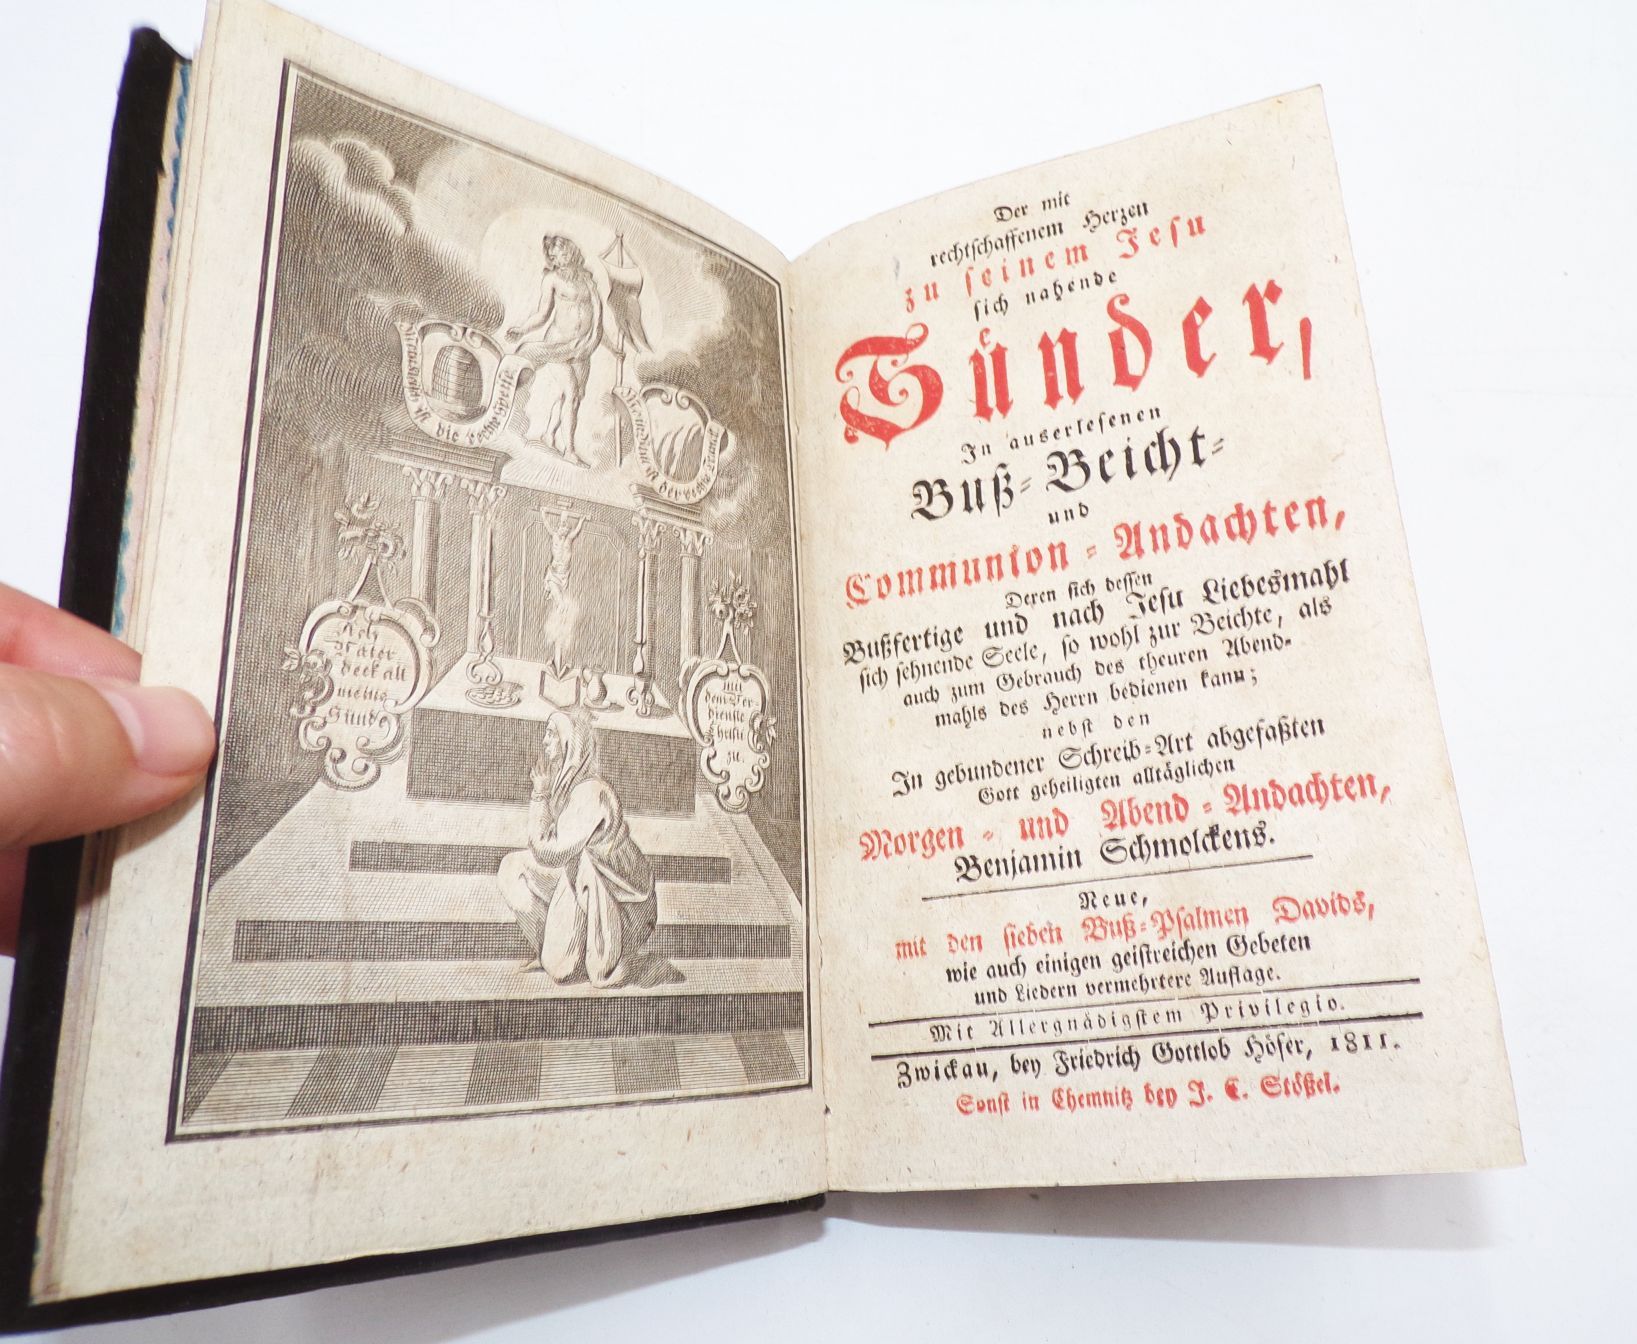 Mein Fleisch ist die rechte Speise
Mein Blut ist der rechte Tranck
Ach
Vater
deck all
meine
Sünde
mit
dem Ver-
dienste
Christi
zu.
Der mit
rechtschaffenem Herzen
zu seinem Jesu
sich nahende
Sünder,
In auserlesenen
Buß-Beicht-
und
Communion-Andachten,
Deren sich dessen
Bußfertige und nach Jesu Liebesmahl
sich sehnende Seele, so wohl zur Beichte, als
auch zum Gebrauch des theuren Abend-
mahls des Herrn bedienen kann;
nebst den
In gebundener Schreib-Art abgefaßten
Gott geheiligten alltäglichen
Morgen- und Abend-Andachten,
Benjamin Schmolckens.
Neue,
mit den sieben Buß-Psalmen Davids,
wie auch einigen geistreichen Gebeten
und Liedern vermehrtere Auflage.
Mit Allergnädigstem Privilegio.
Zwickau, bey Friedrich Gottlob Höfer, 1811.
Sonst in Chemnitz bey J. C. Stößel.